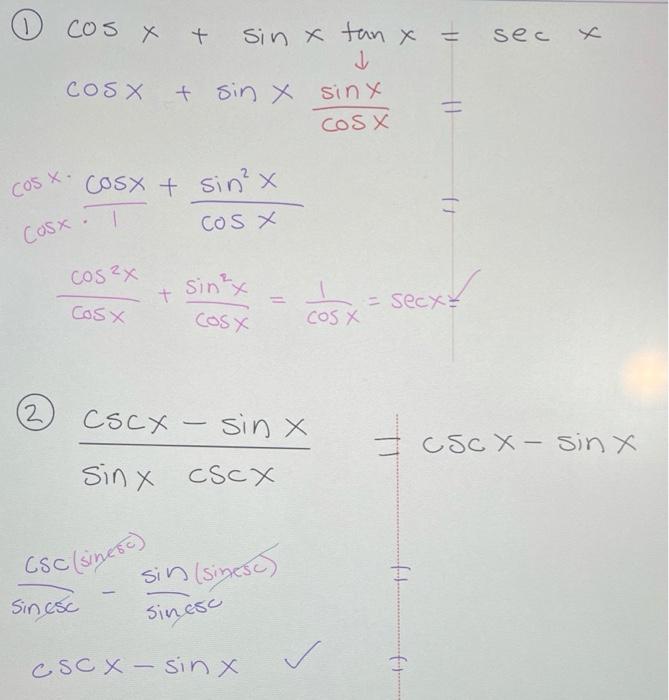 ① cos x + sin x tan x = sec x
↓
cos x + sin x sin x / cos x =
cos x · cos x / cos x · 1 + sin² x / cos x =
cos² x / cos x + sin² x / cos x = 1 / cos x = sec x = ✓
② csc x − sin x / sin x csc x = csc x − sin x
csc (sin csc) / sin csc − sin (sin csc) / sin csc =
csc x − sin x ✓ =